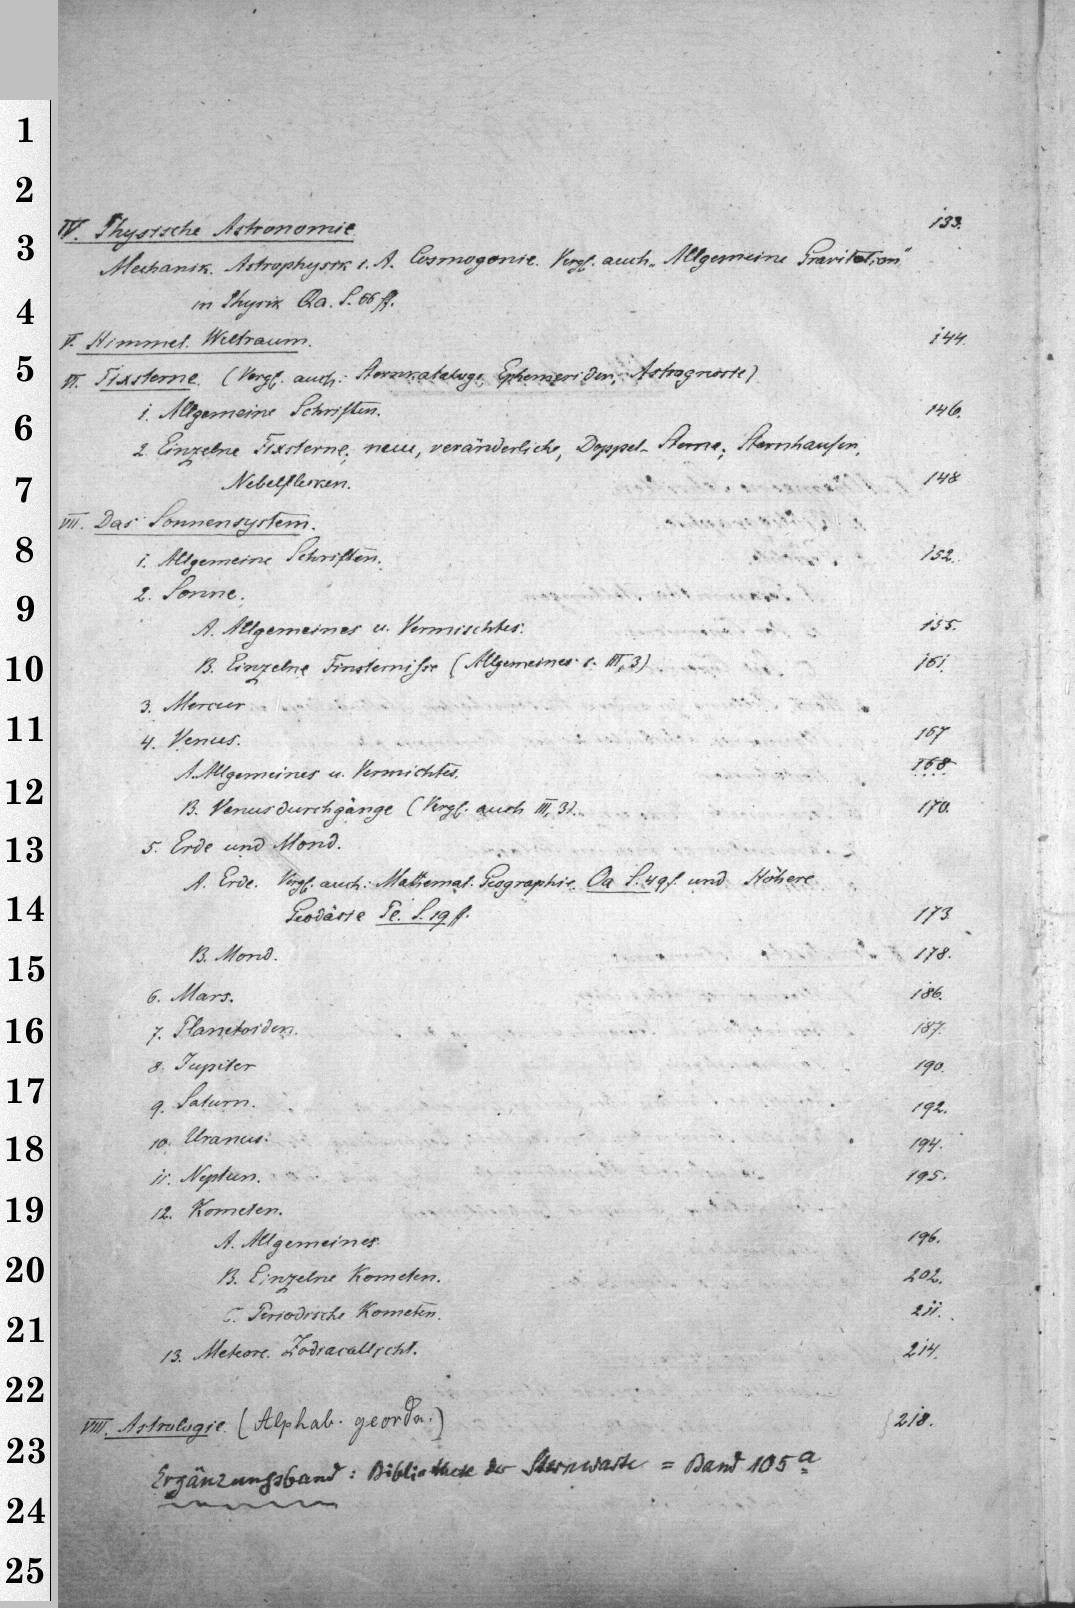 IV. Physische Astronomie 133.
Mechanik. Astrophysik s. A. Cosmogonie. Vergl. auch „Allgemeine Gravitation"
in Physik Qa. S. 66 ff.
V. Himmel. Weltraum. 144.
VI. Fixsterne. (Vergl. auch: Sternkataloge, Ephemeriden, Astrognosie)
1. Allgemeine Schriften. 146.
2 Einzelne Fixsterne; neue, veränderliche, Doppel-Sterne; Sternhaufen,
Nebelflecken. 148
VII. Das Sonnensystem.
1. Allgemeine Schriften. 152.
2. Sonne.
A. Allgemeines u. Vermischtes. 155.
B. Einzelne Finsternisse (Allgemeines s. III, 3) 161.
3. Mercur
4. Venus. 167
A. Allgemeines u. Vermichtes. 168
B. Venusdurchgänge (Vergl. auch III, 3). 170.
5. Erde und Mond.
A. Erde. Vergl. auch: Mathemat. Geographie. Oa S. 49 f. und Höhere
Geodäsie Pe. S. 19 f. 173
B. Mond. 178.
6. Mars. 186.
7. Planetoiden. 187.
8. Jupiter 190.
9. Saturn. 192.
10. Uranus. 194.
11. Neptun. 195.
12. Kometen.
A. Allgemeines 196.
B. Einzelne Kometen. 202.
C. Periodische Kometen. 211.
13. Meteore. Zodiacallicht. 214.
VIII. Astrologie. (Alphab. geordn.) 218.
Ergänzungsband: Bibliothek der Sternwarte = Band 105 a
1
2
3
4
5
6
7
8
9
10
11
12
13
14
15
16
17
18
19
20
21
22
23
24
25